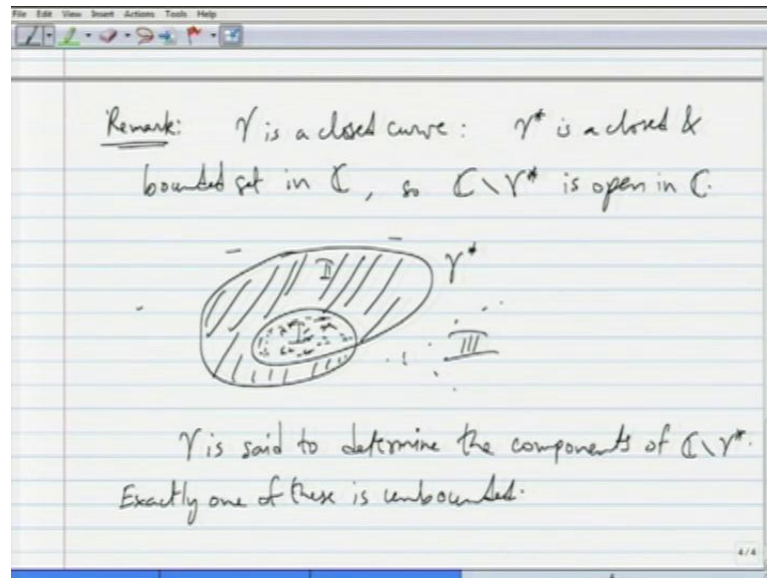 File Edit View Insert Actions Tools Help
Remark: γ is a closed curve: γ* is a closed &
bounded set in ℂ, so ℂ∖γ* is open in ℂ.
II
γ*
I
III
γ is said to determine the components of ℂ∖γ*.
Exactly one of these is unbounded.
4/4